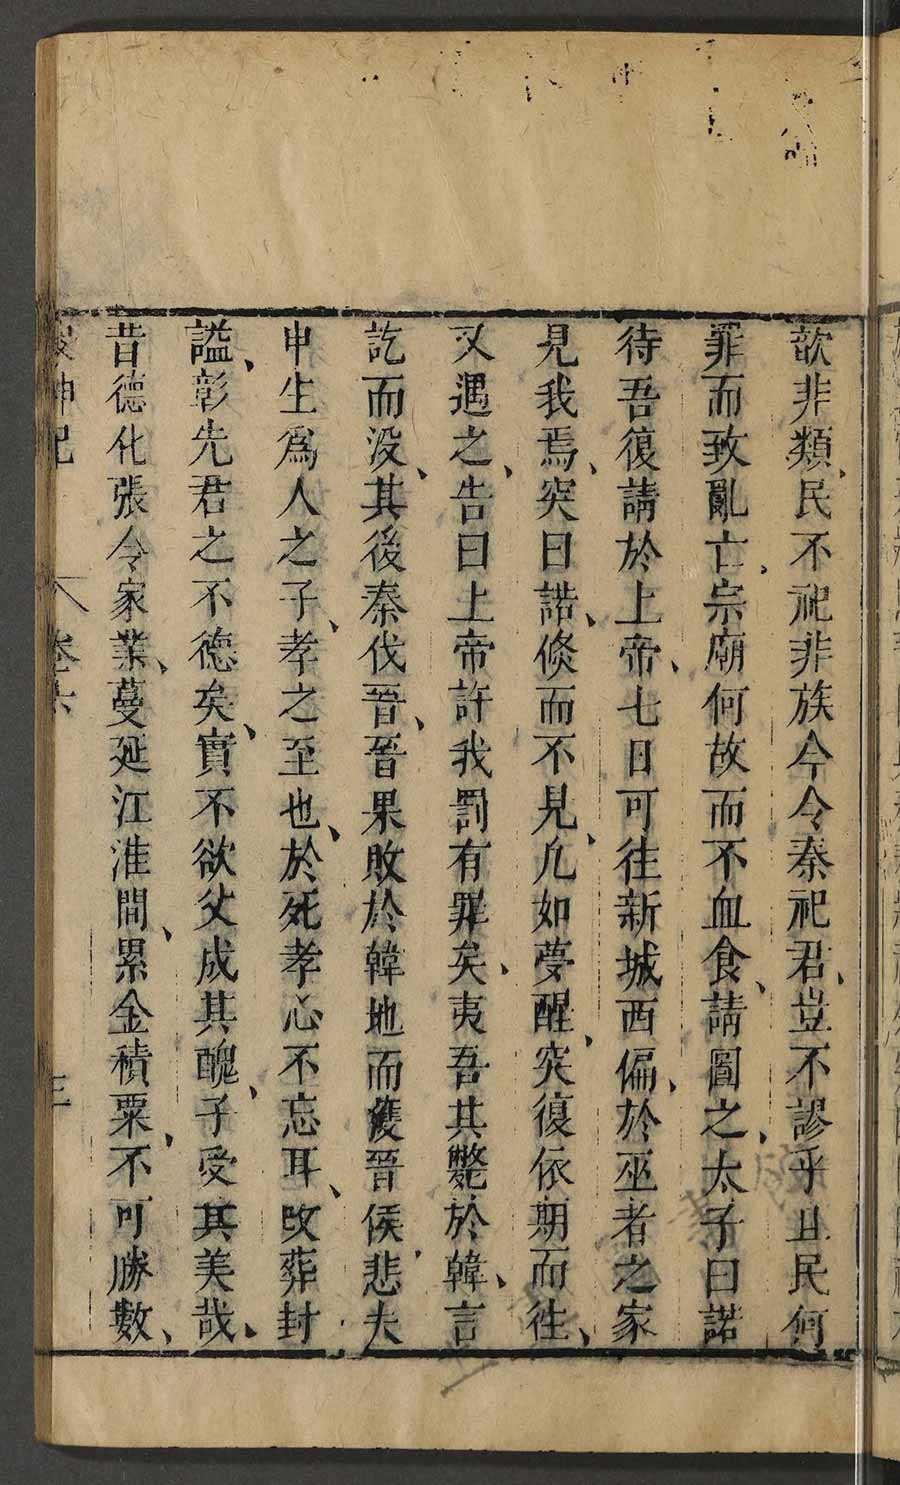 歆非類民不祀非族今令秦祀君豈不謬乎且民何
罪而致亂亡宗廟何故而不血食請圖之太子曰諾
待吾復請於上帝七日可往新城西偏於巫者之家
見我焉突曰諾倐而不見凢如夢醒突復依期而往
又遇之告曰上帝許我罰有罪矣夷吾其斃於韓言
訖而没其後秦伐晉晉果敗於韓地而獲晉侯悲夫
申生爲人之子孝之至也於死孝心不忘耳改葬封
謚彰先君之不德矣實不欲父成其醜子受其美哉
昔德化張令家業蔓延江淮間累金積粟不可勝數
搜神記 卷六 三